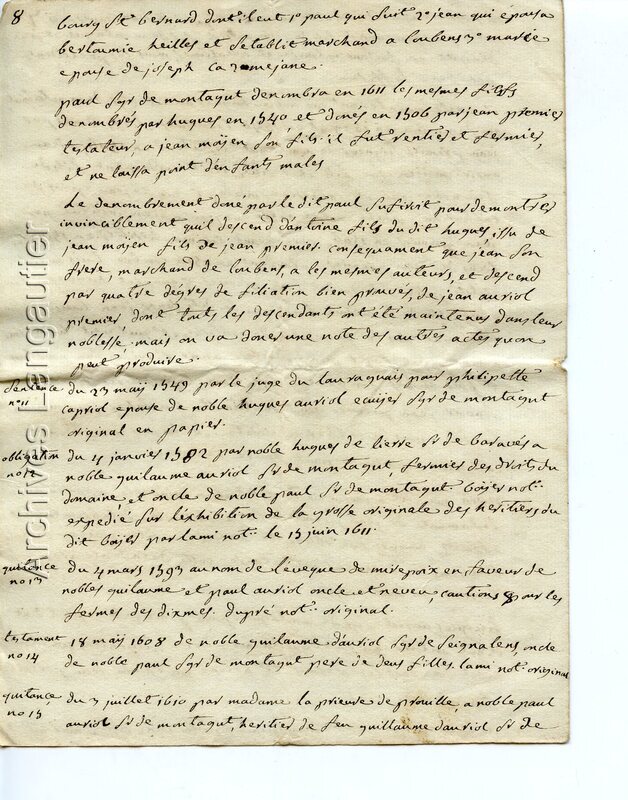 8
bourg St bernard dont il eut 1o paul qui suit 2o jean qui épousa
bertoumie heilles et setablit marchand a loubens 3o marcie
epouse de joseph cazemejane.
paul sgr de montagut denombra en 1611 les mesmes fiefs
denombrés par hugues en 1540 et donés en 1506 par jean premier
testateur, a jean moÿen son fils. il fut rentier et fermier,
et ne laissa point d'enfants males
Le denombrement doné par le dit paul sufiroit pour demontrer
invinciblement quil descend dantoine fils du dit hugues issu de
jean moÿen fils de jean premier. consequament que jean son
frere, marchand de loubens, a les mesmes auteurs, et descend
par quatre degres de filiation bien prouvés, de jean auriol
premier, dont touts les descendants ont été maintenus dans leur
noblesse. mais on va doner une note des autres actes quon
peut produire.
Sentence no 11
du 23 maÿ 1549 par le juge du lauraguais pour philipette
capriol epouse de noble hugues auriol ecuÿer sgr de montagut
original en papier.
obligation no 12
du 4 janvier 1582 par noble hugues de lierre sr de baravés a
noble guilaume auriol sr de montagut, fermier des droits du
domaine, et oncle de noble paul sr de montagut boÿer not.
expedié sur l'exhibition de la grosse originale des heritiers du
dit boÿer par lami not. le 15 juin 1611.
quitance no 13
du 4 mars 1593 au nom de leveque de mirepoix en faveur de
nobles guilaume et paul auriol oncle et neveu, cautions pour les
fermes des dixmes. dupré not. original.
testament no 14
18 maÿ 1608 de noble guilaume d'auriol sgr de seignalens, oncle
de noble paul sgr de montagut pere de deus filles. lami not. original
quitance no 15
du 3 juillet 1610 par madame la prieure de prouille, a noble paul
auriol sr de montagut, heritier de feu guillaume dauriol sr de
Archives Lengautier